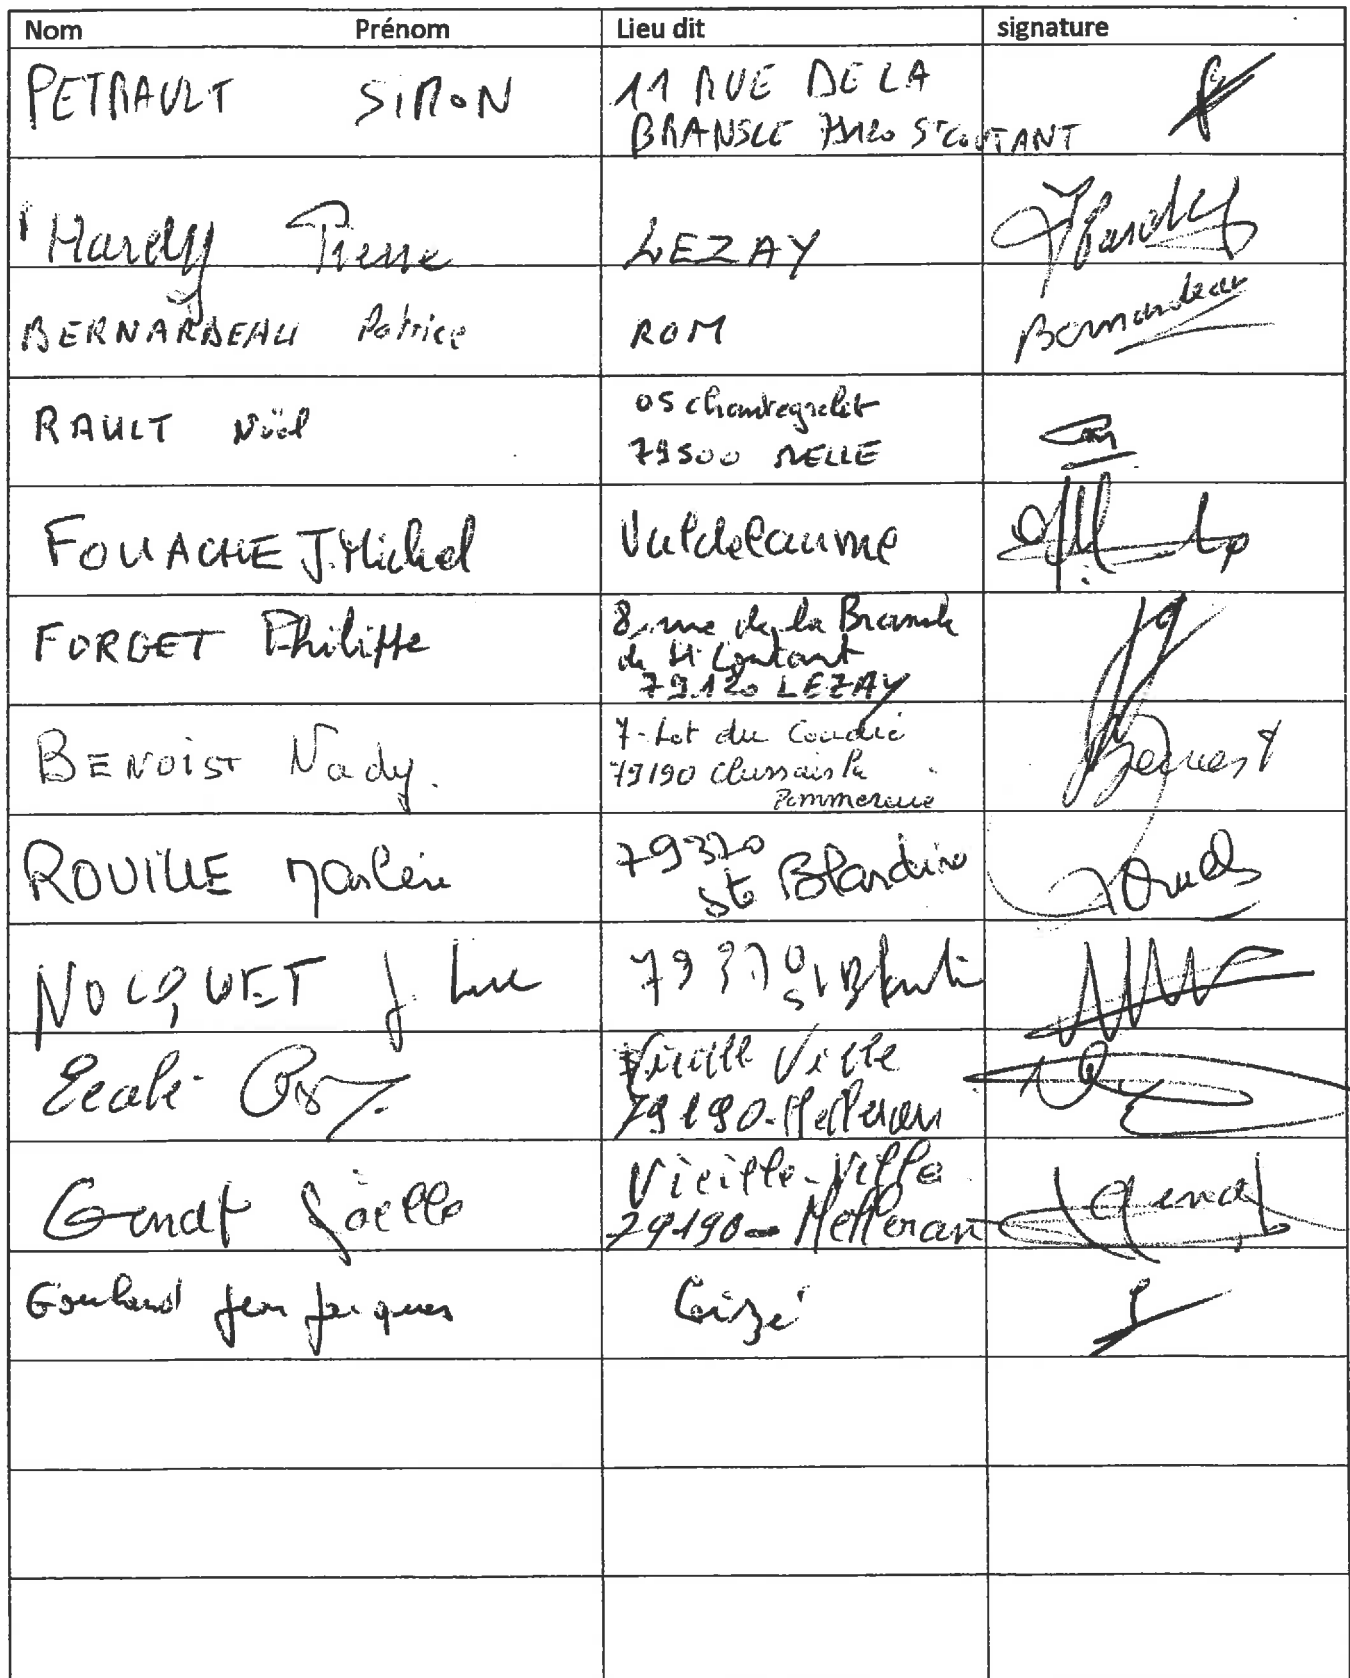 Nom Prénom Lieu dit signature
PETRAULT SIMON 11 RUE DE LA
BRANSLE 79120 St COUTANT
Hardy Pierre LEZAY Hardy
BERNARDEAU Patrice ROM Bernardeau
RAULT Noël 05 chantegrelet
79500 MELLE
FOUACHE J.Michel Valdelaume
FORGET Philippe 8, rue de la Bransle
de St Coutant
79120 LEZAY
BENOIST Nady. 7- Lot du Coudié
79190 Clussais la
Pommeraie
Benoist
ROUILLE Marlène 79370
Ste Blandine
NOCQUET J Luc 79370
St Blandin
Vieille Ville
79190-Melleran
Genat Joëlle Vieille-Ville
79190- Melleran
Genat
Goulard jean jacques Caizé